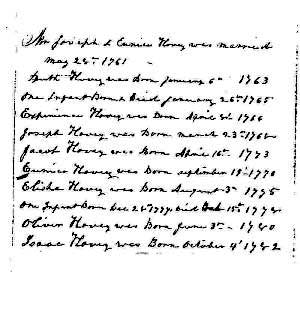 Mr Joseph & Eunice Hovey was married
may 28th 1761
Ruth Hovey was Born January 6th 1763
one Infant Born & Died January 26th 1765
Experience Hovey was Born April 1766
Joseph Hovey was Born march 23th 1768
Jacob Hovey was Born April 16th 1773
Eunice Hovey was Born september 1770
Elisha Hovey was Born August 3th 1775
one Infant Born Dec 28th 1777 Died 15th 1778
Oliver Hovey was Born June 3th - 1780
Isaac Hovey was Born October 4th 1782